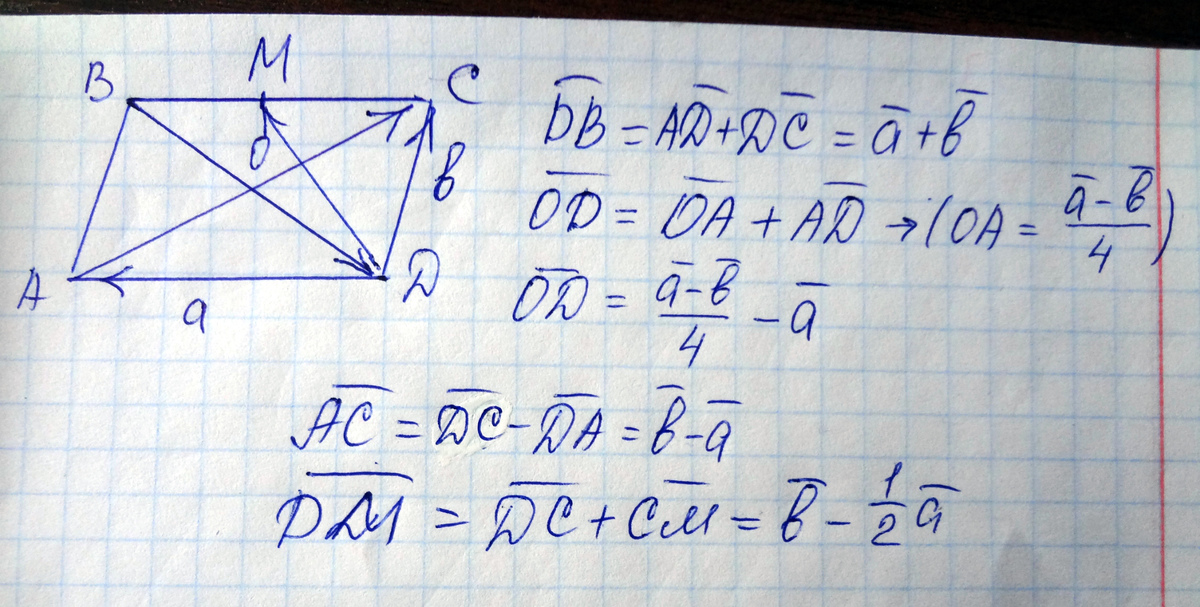 B M C
O в
A a D
D̅B̅ = A̅D̅ + D̅C̅ = a̅ + в̅
O̅D̅ = O̅A̅ + A̅D̅ → (OA = (a̅ - в̅)/4)
O̅D̅ = (a̅ - в̅)/4 - a̅
A̅C̅ = D̅C̅ - D̅A̅ = в̅ - a̅
D̅M̅ = D̅C̅ + C̅M̅ = в̅ - 1/2 a̅